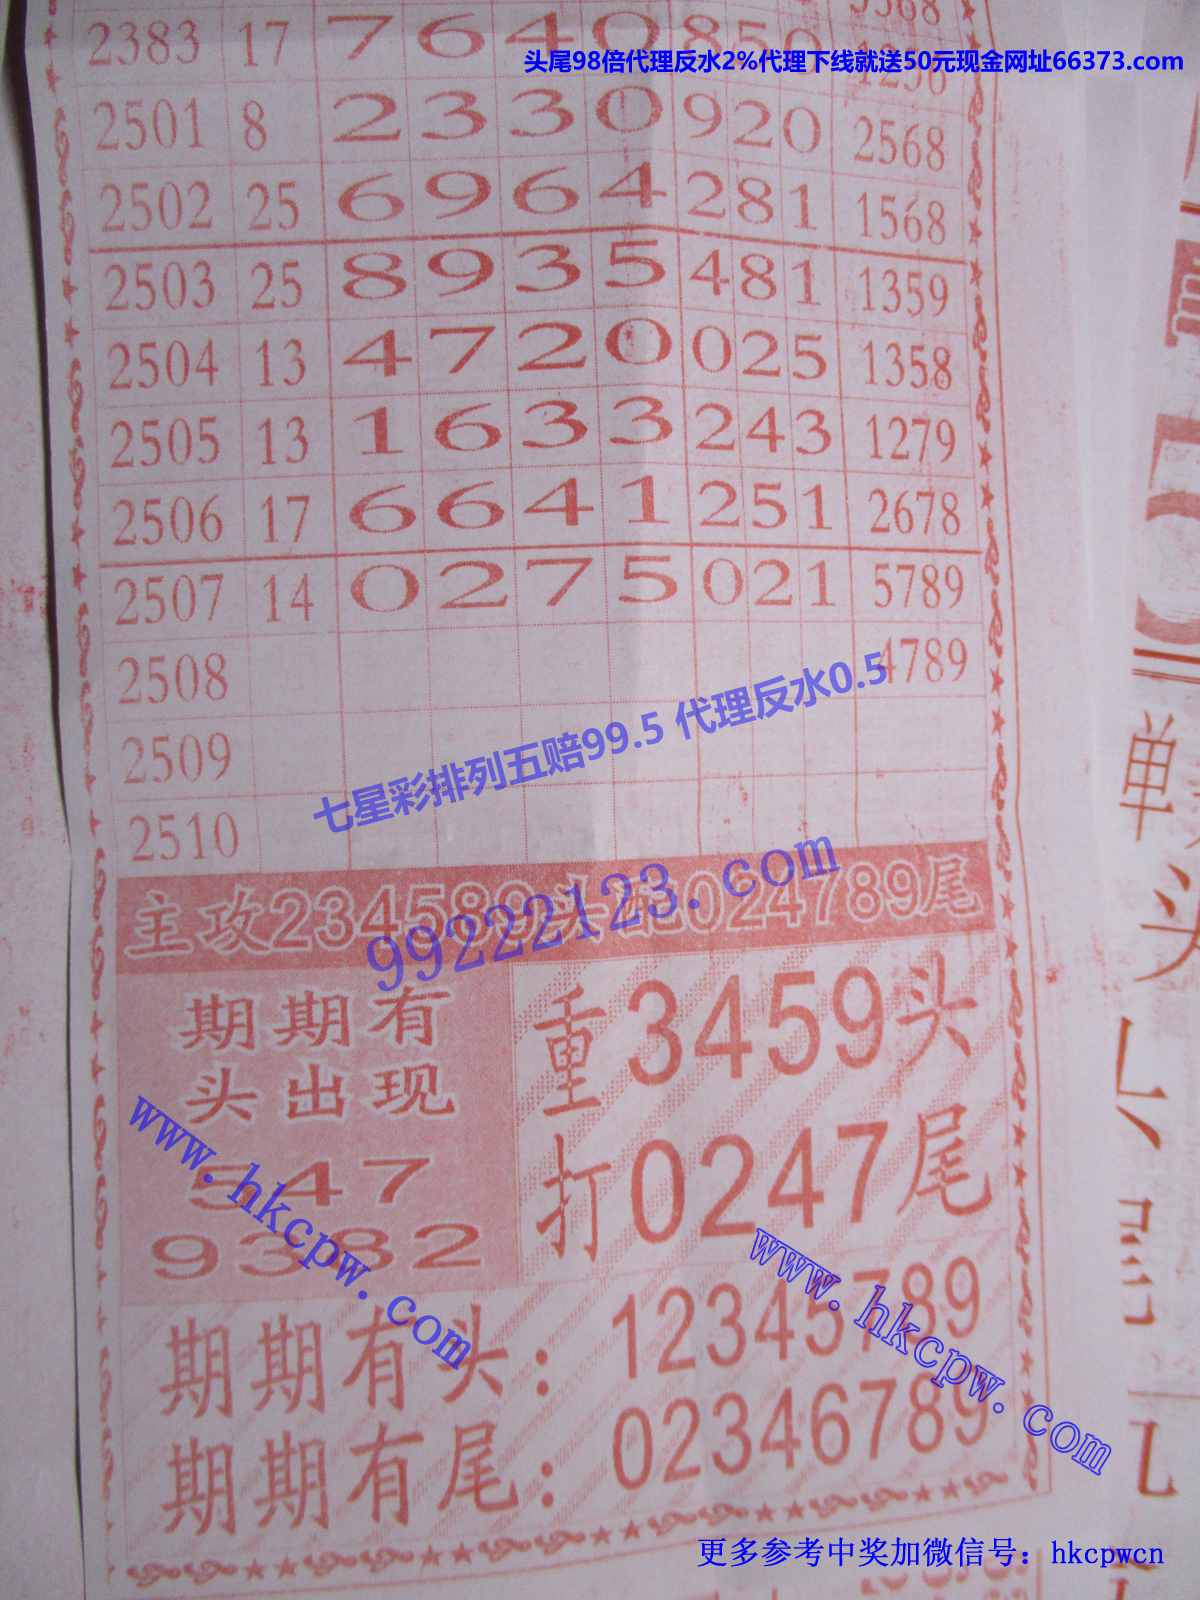 5568
头尾98倍代理反水2%代理下线就送50元现金网址66373.com
2383 17 7640850
2501 8 2330920 2568
2502 25 6964281 1568
2503 25 8935481 1359
2504 13 4720025 1358
2505 13 1633243 1279
2506 17 6641251 2678
2507 14 0275021 5789
2508 4789
2509
2510
七星彩排列五赔99.5 代理反水0.5
主攻234589头配024789尾
99222123.com
期期有
头出现
547
9382
重3459头
打0247尾
www.hkcpw.com
www.hkcpw.com
期期有头:12345789
期期有尾:02346789
更多参考中奖加微信号：hkcpwcn
单
头